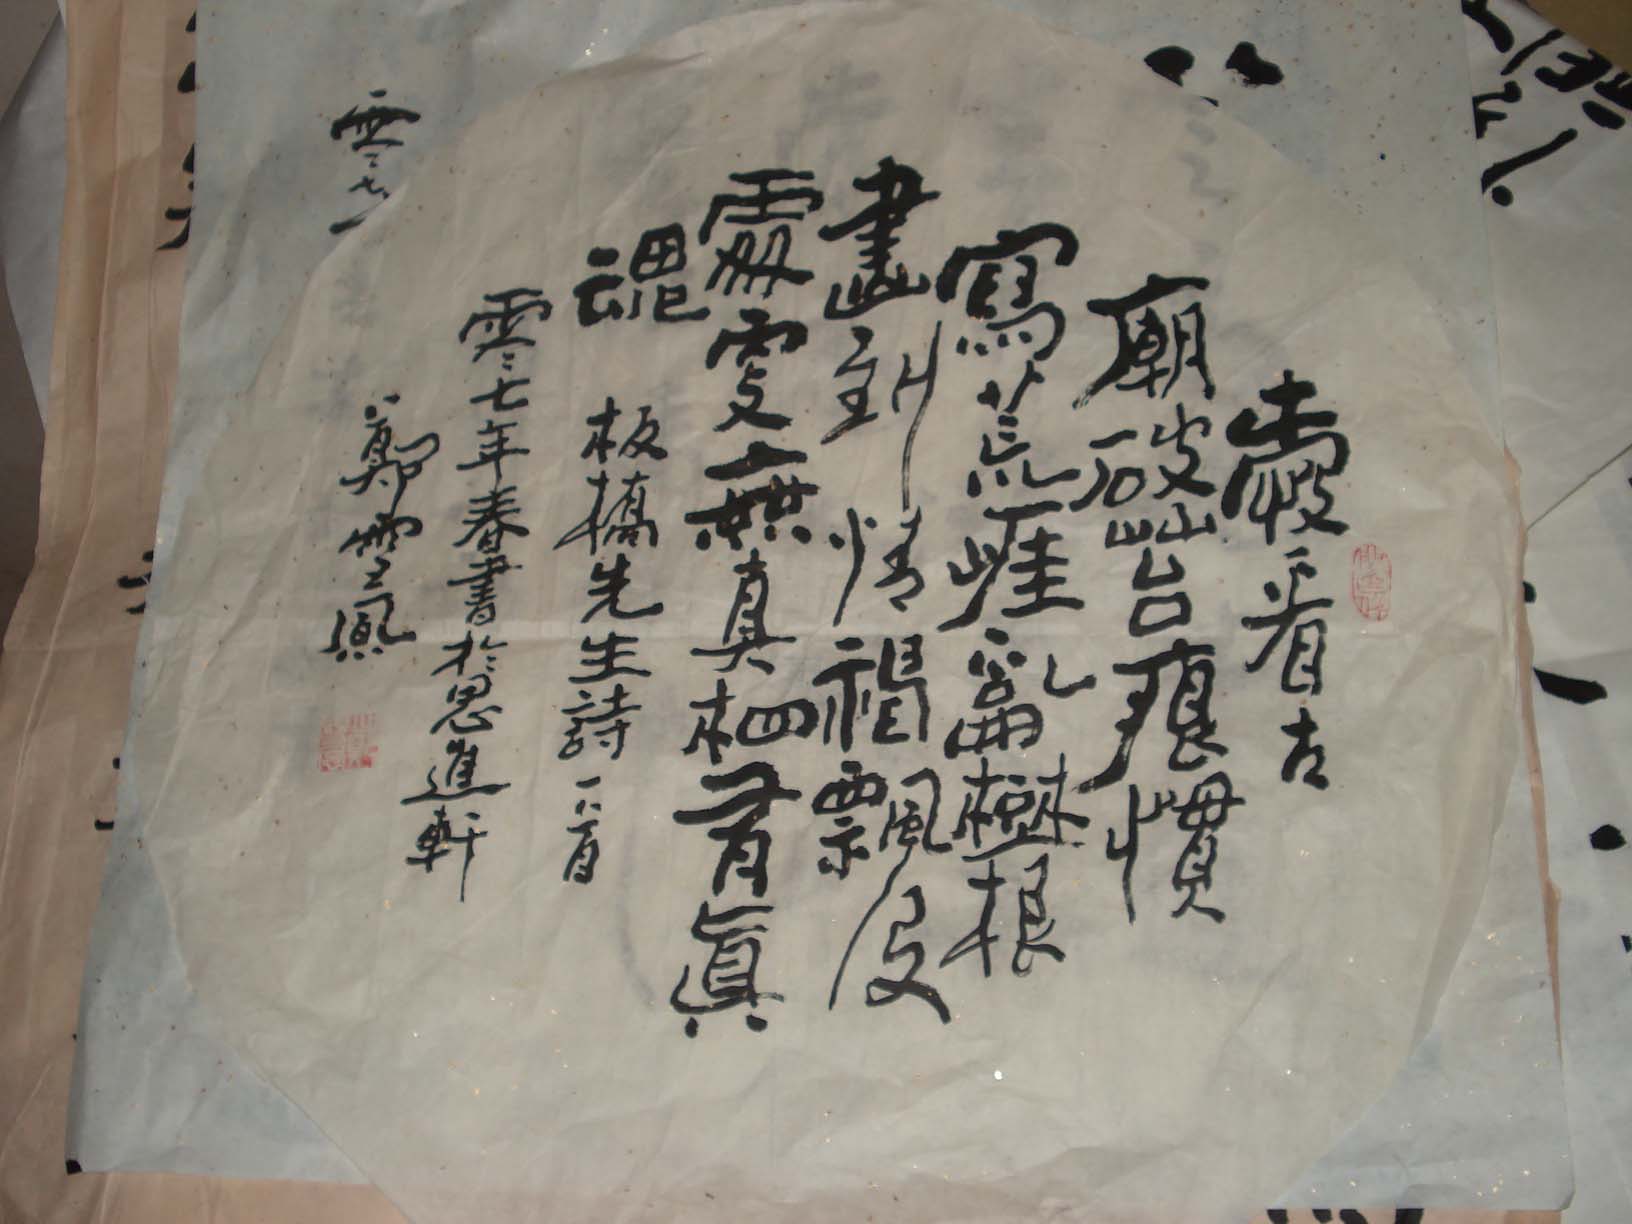 愛看古
廟破苔痕慣
寫荒崖亂樹根
畫到情神飄没
處更無真相有真
魂 板橋先生詩一首
零七年春書於思進軒
鄭雲
零七